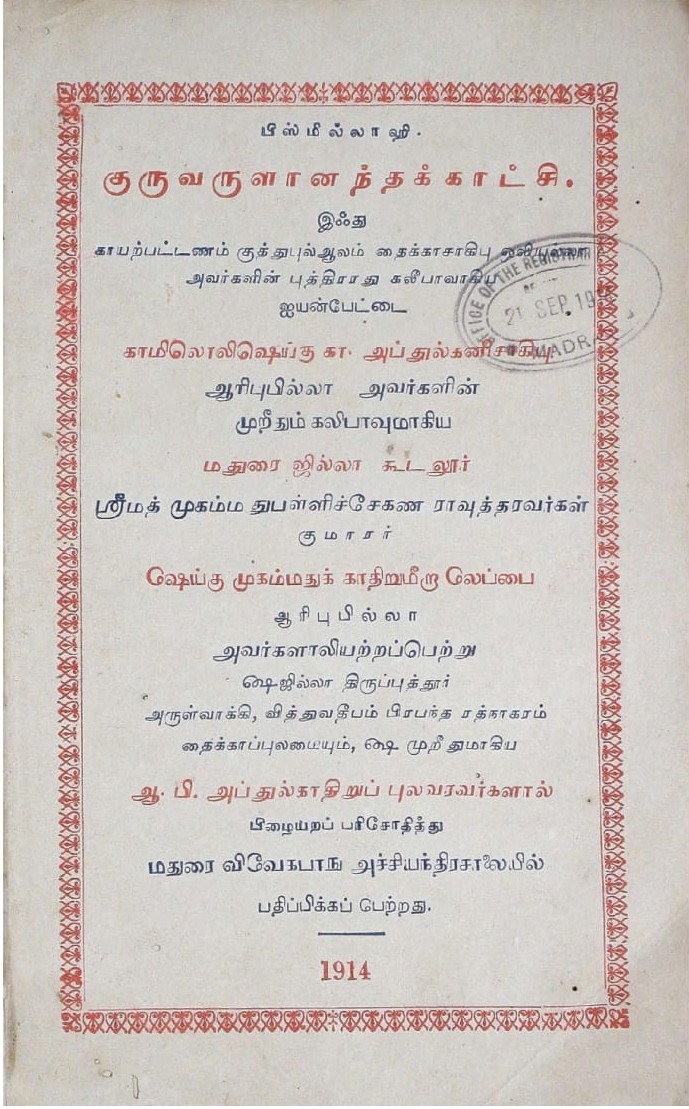 பிஸ்மில்லாஹி.
குருவருளானந்தக்காட்சி.
இஃது
காயற்பட்டணம் குத்துபுல்ஆலம் தைக்காசாகிபு ஒலியுல்லா
அவர்களின் புத்திரரது கலீபாவாகிய
ஐயன்பேட்டை
காமிலொலிஷெய்கு கா. அப்துல்கனிசாகிபு
ஆரிபுபில்லா அவர்களின்
முரீதும் கலிபாவுமாகிய
மதுரை ஜில்லா கூடலூர்
ஸ்ரீமத் முகம்மதுபள்ளிச்சேகண ராவுத்தரவர்கள்
குமாரர்
ஷெய்கு முகம்மதுக் காதிறுமீறா லேப்பை
ஆரிபுபில்லா
அவர்களாலியற்றப்பெற்று
௸ஜில்லா திருப்புத்தூர்
அருள்வாக்கி, வித்துவதீபம் பிரபந்த ரத்நாகரம்
தைக்காப்புலமையும், ௸ முரீதுமாகிய
ஆ. பி. அப்துல்காதிறுப் புலவரவர்களால்
பிழையறப் பரிசோதித்து
மதுரை விவேகபாநு அச்சியந்திரசாலையில்
பதிப்பிக்கப் பெற்றது.
1914
OFFICE OF THE REGISTRAR
21 SEP 19
MADR